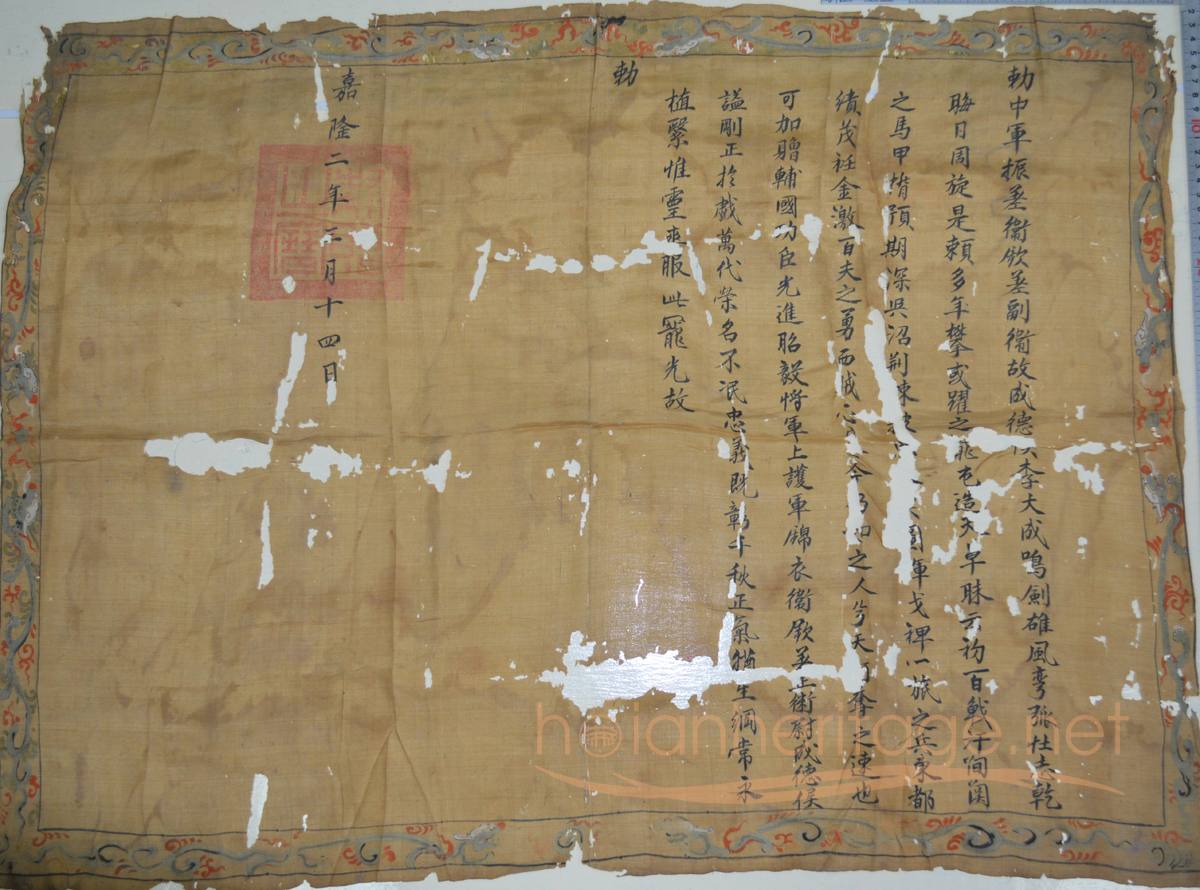 勅中軍振差衞欽差副衞故成德侯李大成鳴劍雄風彎弧壮志乾
晦日周旋是賴多年攀或躍之飛屯造天早昧云初百戰汗
之馬甲揹預期深吳沼荆東 軍戈禆一旅之兵東都
績茂衽金激百夫之勇而城心 今 之人兮天 奪之速也
可加贈輔國功臣光進昭毅將軍上護軍錦衣衞欽差正衞尉成德侯
謚剛正於戲萬代榮名不泯忠義既彰千秋正氣猶生綱常永
植繄惟靈爽服此寵光故
勅
嘉隆二年二月十四日
hoianheritage.net